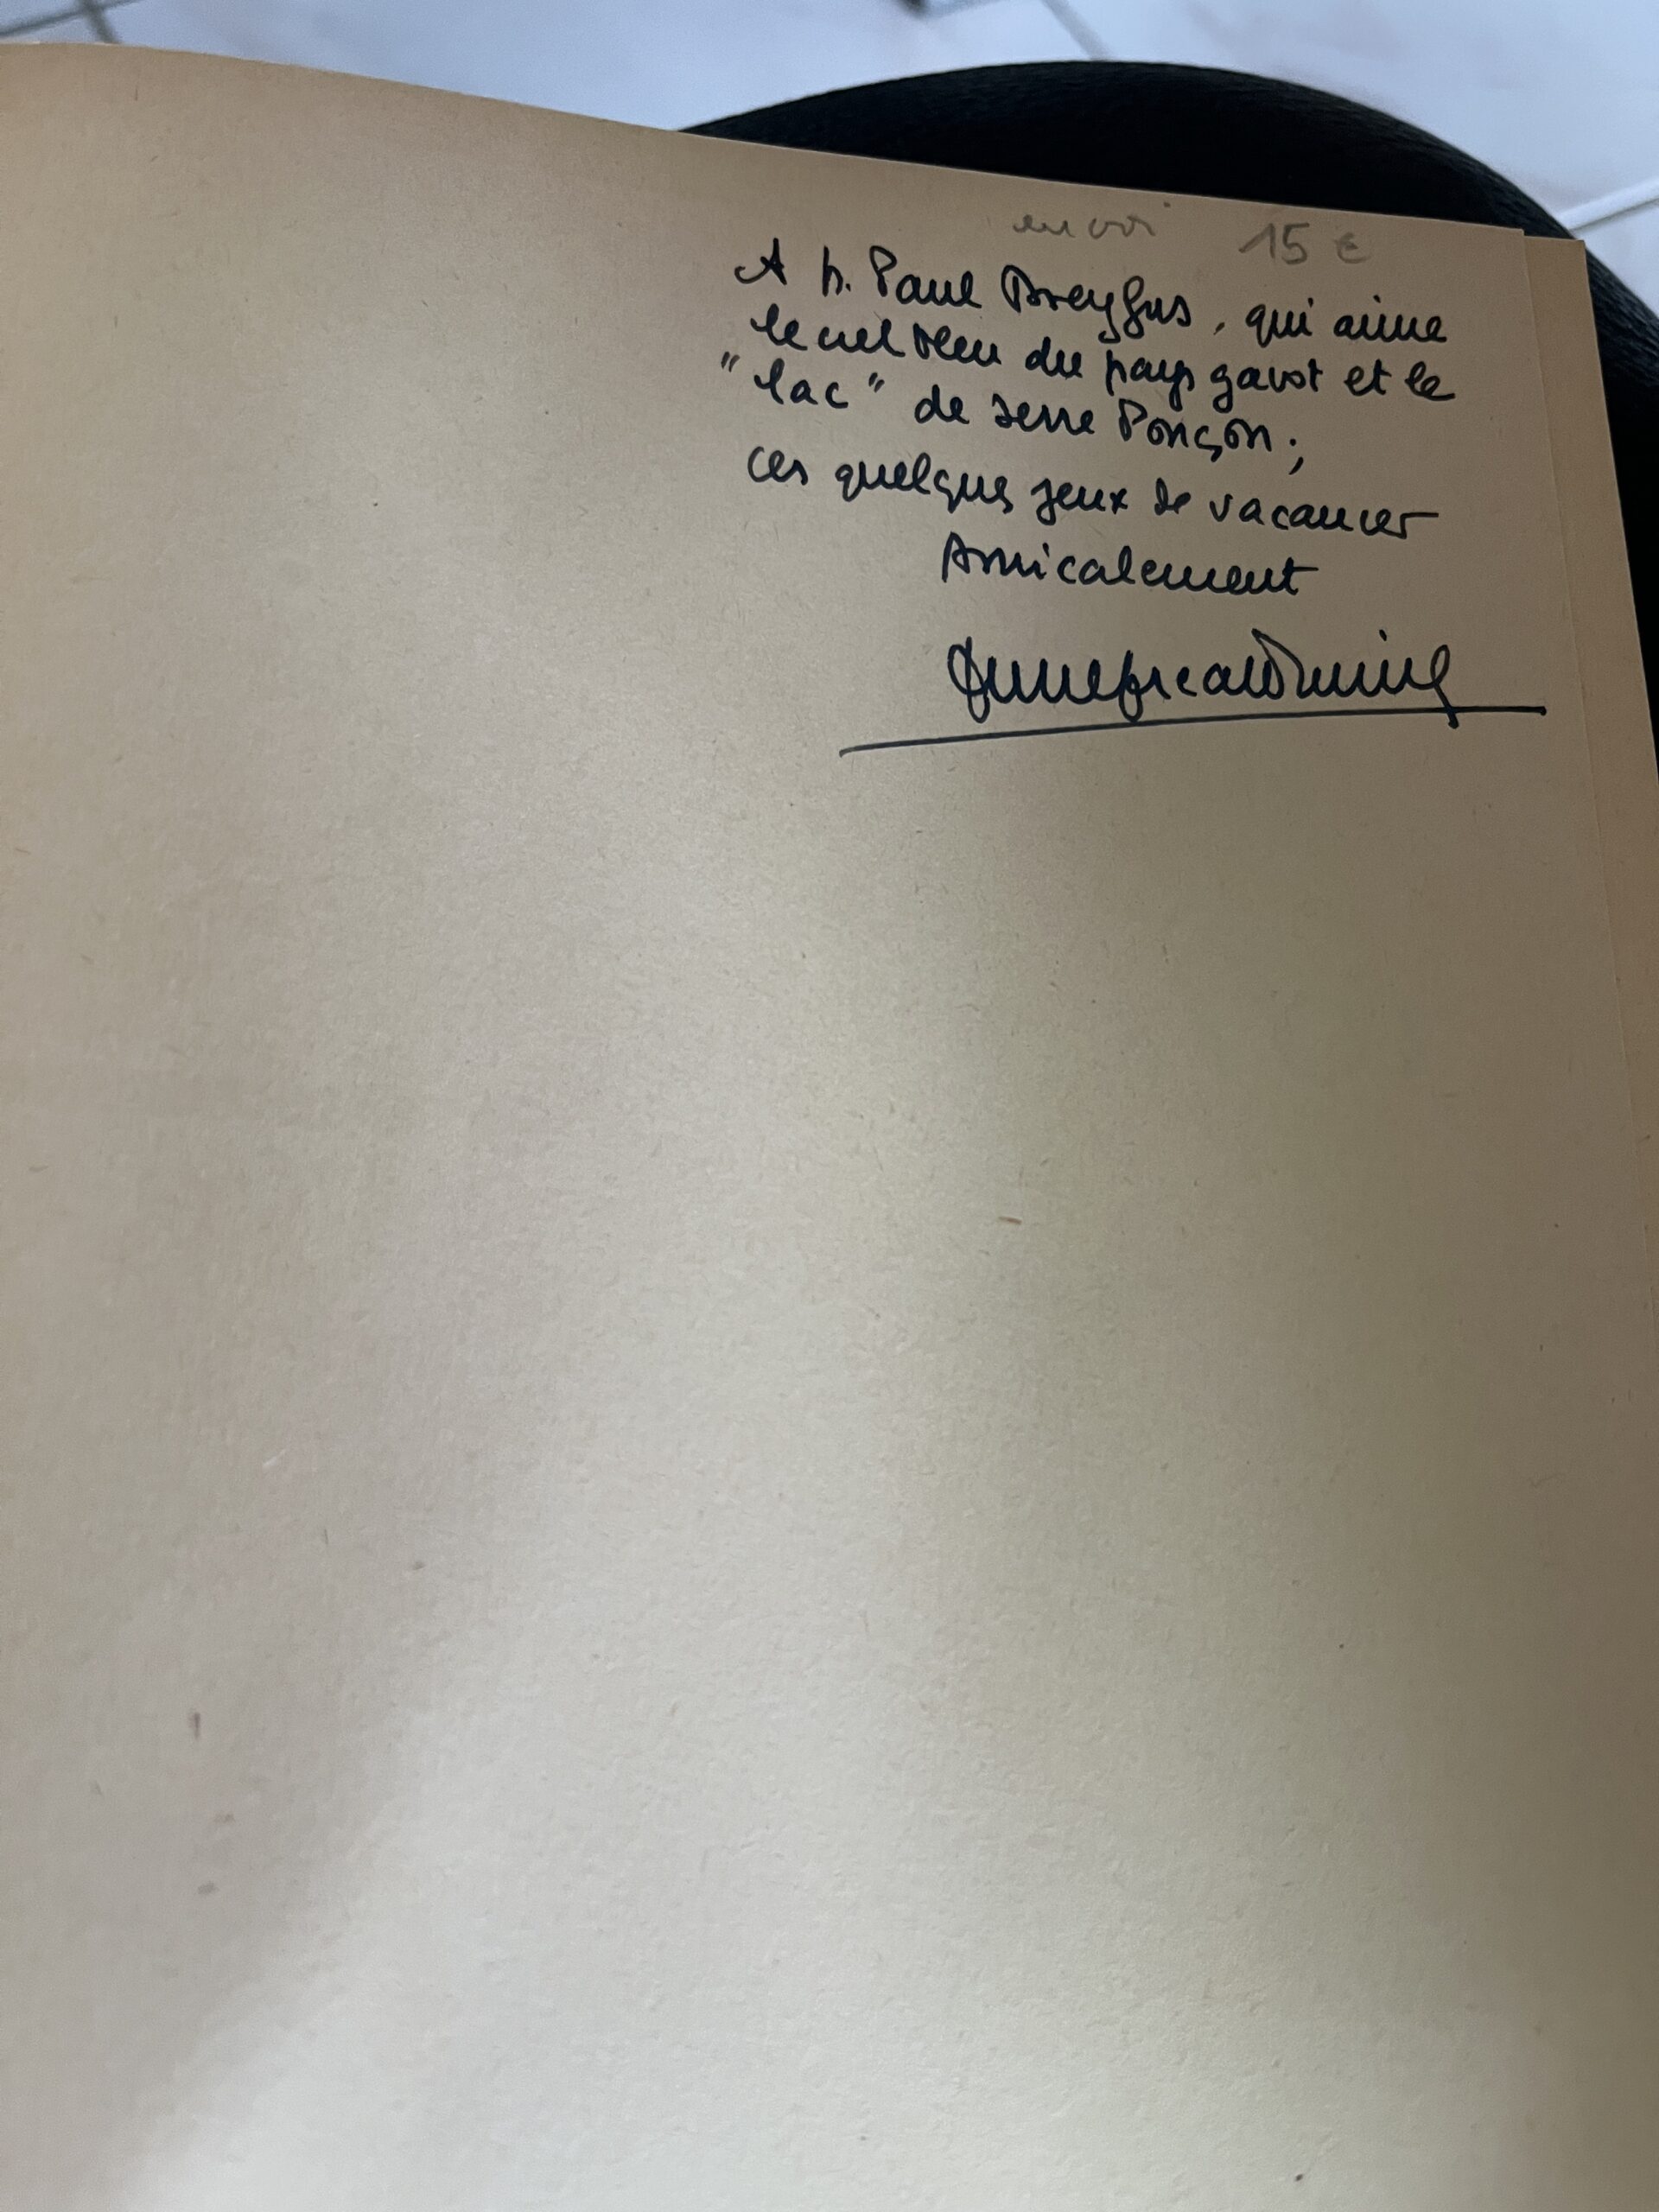 envoi 15 €
A M. Paul Dreyfus, qui aime
le ciel bleu du pays gavot et le
"lac" de Serre Ponçon;
ces quelques jeux de vacances
Amicalement